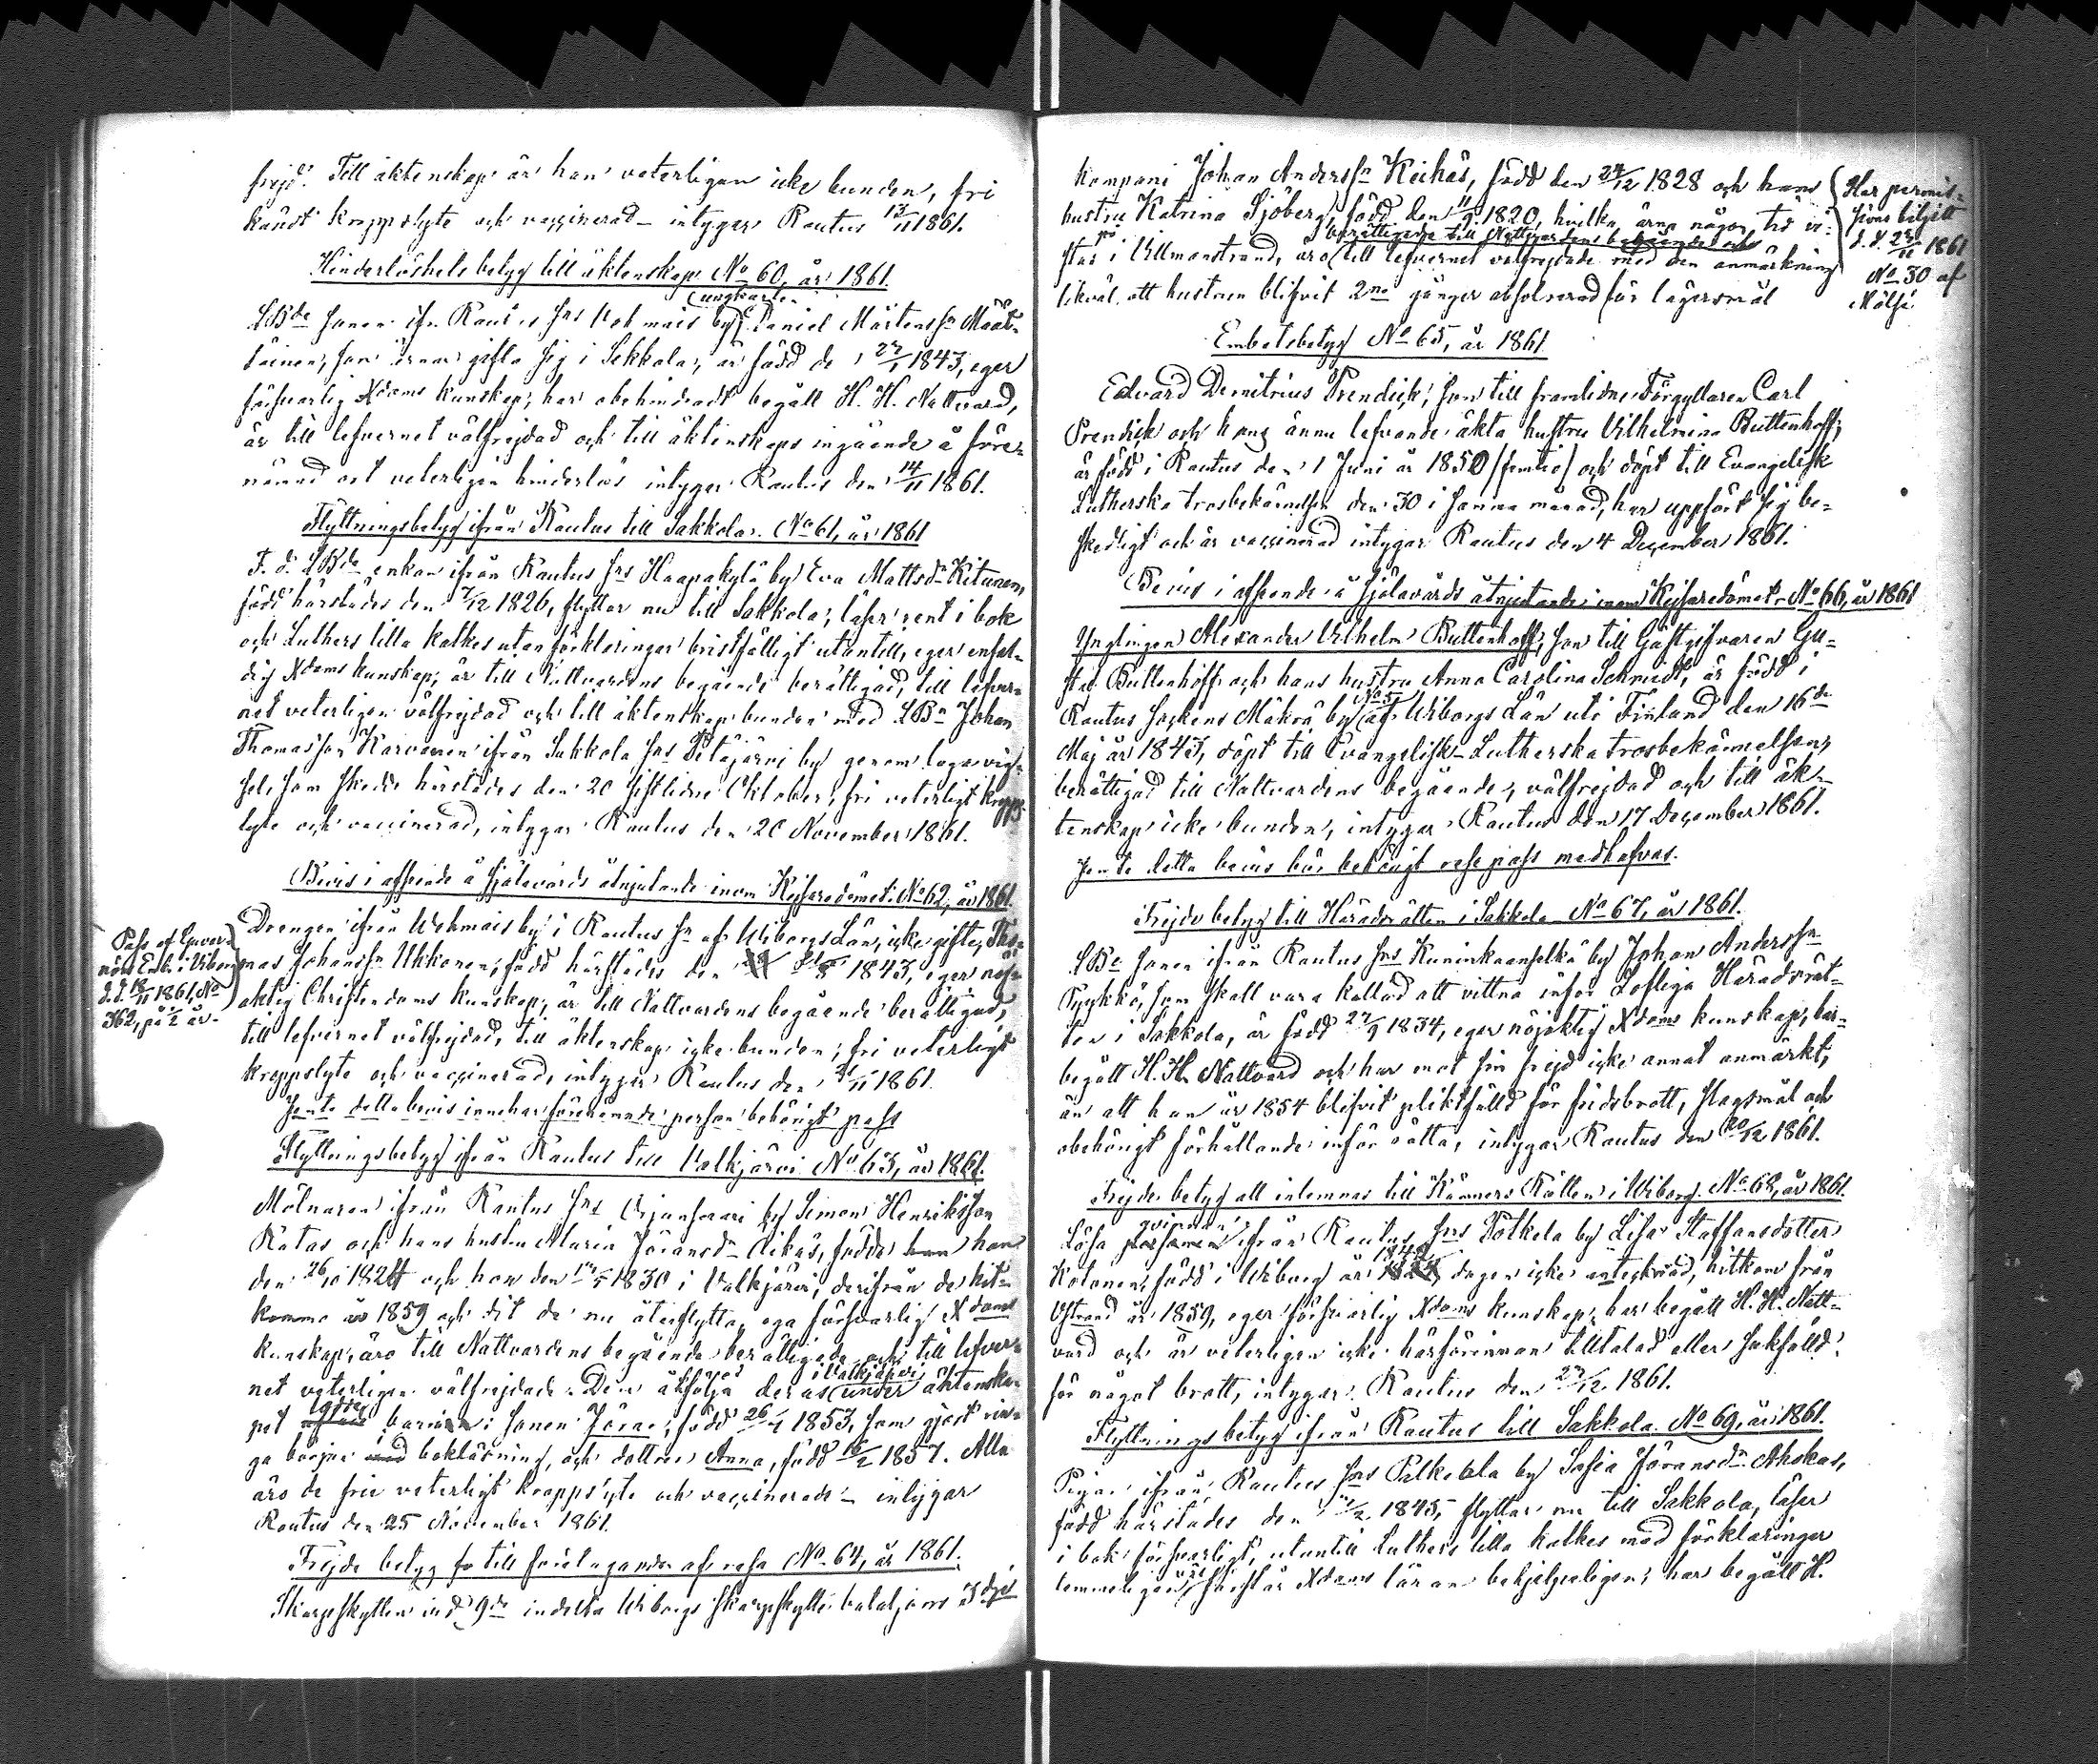 frejd. Till äktenskap är han veterligen icke bunden, fri
kändt kroppslyte och vaccinerad - intygar Rautus 13/11 1861.
Hinderlöshets betyg till äktenskap No 60, år 1861.
LBde sonen ifrn Rautus Sns Wehmais by, (ungkarlen Daniel Mårtenssn Määt-
täinen, som ärnar gifta sig i Sakkola, är född de 27/1 1843, eger
försvarlig Xdoms kunskap; har obehindradt begått H. H. Nattvard,
är till lefvernet välfrejdad och till äktenskaps ingående å före-
nämnd ort veterligen hinderlös intygar Rautus den 14/11 1861.
Flyttningsbetyg ifrån Rautus till Sakkola. No 61, år 1861
F. d. LBde enkan ifrån Rautus Sns Haapakylä by Eva Mattsdr Kitunen,
född härstädes den 7/12 1826, flyttar nu till Sakkola; läser rent i bok
och Luthers lilla katkes utan förklaringar bristfälligt utantill, eger enfal-
dig Xdoms kunskap, är till Nattvardens begående berättigad, till lefver-
net veterligen välfrejdad och till äktenskap bunden med LBn Johan
Thomasson Karvonen ifrån Sakkola Sns Petäjärvi by genom laga vig-
sel, som skedde härstädes den 20 sistlidne Oktober, fri veterligt kropps
lyte och vaccinerad, intygar Rautus den 20 November 1861.
Bevis i afseende å själavårds åtnjutande inom Kejsaredömet. No 62, år 1861.
Drengen ifrån Wehmais by i Rautus Sn af Wiborgs Län, icke gifte, Tho-
mas Johanssn Ukkonen, född härstädes den 21/8 1843, eger nöj-
aktig Christendoms kunskap, är till Nattvardens begående berättigad,
till lefvernet välfrejdad, till äktenskap icke bunden; fri veterligt
kroppslyte och vaccinerad, intygar Rautus den 21/11 1861.
Jemte detta bevis innehar förenämnde person behörigt pass
Pass af Guver-
nörs Emb. i Viborg
d.d. 18/11 1861, No
362, på 1/2 år.
Flyttningsbetyg ifrån Rautus till Valkjärvi No 63, år 1861.
Mölnaren ifrån Rautus Sns Orjansaari by Simon Henriksson
Ratas och hans hustru Maria Jöransdr Aikäs, födde han
den 26/10 1824 och hon den 17/5 1830 i Valkjärvi, derifrån de hit-
komma år 1859 och dit de nu återflytta, ega försvarlig Xdoms
kunskap; äro till Nattvardens begående berättigade och till lefver-
net veterligen välfrejdade. Dem åtfölja deras under i Valkjärvi äktenska-
pet barn: sonen Jöran, född 26/4 1853, som gjort rin-
ga början bokläsning, och dottren Anna, född 16/2 1857. Alla
äro de frie veterligt kroppslyte och vaccinerade - intygar
Rautus den 25 November 1861.
Frejde betyg till företagande af resa No 64, år 1861.
Skarpskytten vid 9de indelta Wiborgs Skarpskytte bataljons 3dje
kompani Johan Anderssn Keihäs, född den 24/12 1828 och hans
hustru Katrina Sjöberg, född den 11/9 1820, hvilka ärna någon tid vi-
stas på i Villmanstrand, äro (berättigade till Nattvardens begående och till lefvernet välfrejdade med den anmärkning
likväl, att hustrun blifvit 2ne gånger absolverad för lägersmål
Har permis-
sions biljett
d. d. 23/11 1861
No 30 af
Mölsi
Embetsbetyg No 65, år 1861.
Edvard Demitrius Prendick, son till framlidne Förgyllaren Carl
Prendick och hans ännu lefvande äkta hustru Vilhelmina Buttenhoff,
är född i Rautus den 1 Juni år 1850 (femtio) och döpt till Evangelisk
Lutherska trosbekännelsen den 30 i samma månad, har uppfört sig be-
skedligt och är vaccinerad intygar Rautus den 4 December 1861.
Bevis i afseende å själavårds åtnjutande inom Kejsaredömet. No 66, år 1861
Ynglingen Alexander Vilhelm Buttenhoff, son till Gästgifvaren Gu-
staf Buttenhoff och hans hustru Anna Carolina Schmidt, är född i
Rautus Sockens Mäkrä by No 5 af Wiborgs Län uti Finland den 16de
Maj år 1843, döpt till Evangelisk-Lutherska trosbekännelsen,
berättigad till Nattvardens begående, välfrejdad och till äk-
tenskap icke bunden, intygar Rautus den 17 December 1861.
Jemte detta bevis bör behörigt resepass medhafvas.
Frejde betyg till Häradsrätten i Sakkola No 67, år 1861.
LBe sonen ifrån Rautus Sns Kuninkaanselkä by Johan Anderssn
Pyykkö, som skall vara kallad att vittna inför Lofliga Häradsrät-
ten i Sakkola, är född 27/9 1834, eger nöjaktig Xdoms kunskap, har
begått H. H. Nattvard och har emot sin frejd icke annat anmärkt,
än att han år 1854 blifvit pliktfälld för fridsbrott, slagsmål och
obehörigt förhållande inför rätta, intygar Rautus den 20/12 1861.
Frejde betyg att inlemnas till Kämners Rätten i Wiborg. No 68, år 1861.
Lösa qvinnan ifrån Rautus Sns Potkela by Lisa Staffansdotter
Kotonen, född i Wiborg år 1840, dagen icke antecknad, hitkom från
Ostrand år 1859, eger försvarlig Xdoms kunskap; har begått H. H. Natt-
vard och är veterligen icke härförinnan tilltalad eller sakfälld
för något brott, intygar Rautus den 27/12 1861.
Flyttningsbetyg ifrån Rautus till Sakkola No 69, år 1861.
Pigan ifrån Rautus Sns Palkeala by Sofia Jöransdr Ahokas,
född härstädes den 1845, flyttar nu till Sakkola, läser
i bok försvarligt, utantill Luthers lilla katkes med förklaringar
temmeligen, förstår Xdoms läran behjelpligen; har begått H.